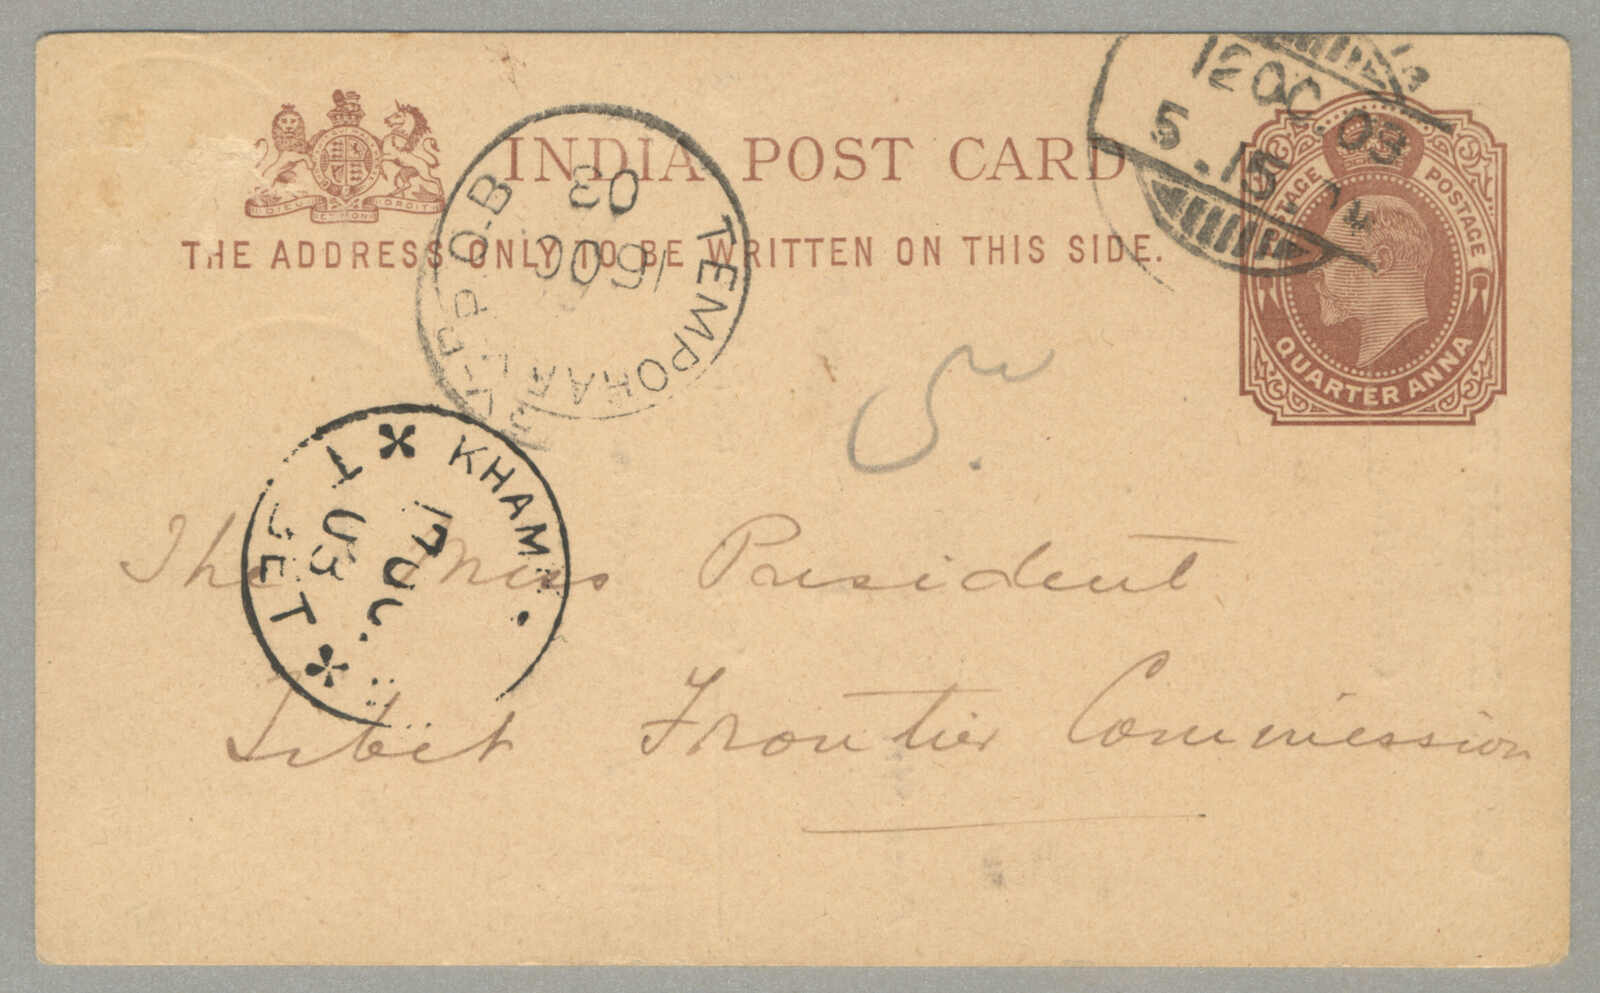 INDIA POST CARD
THE ADDRESS ONLY TO BE WRITTEN ON THIS SIDE.
12 OC. 03
5 .15
POSTAGE POSTAGE
QUARTER ANNA
TEMPORARY P.O.B
16 OC
03
KHAMB
TIBET
17 OC.
03
The Mess President
Tibet Frontier Commission